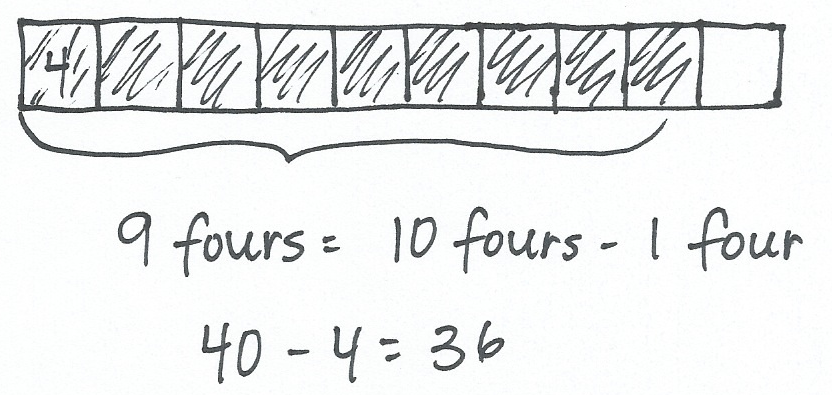 4
9 fours = 10 fours - 1 four
40 - 4 = 36